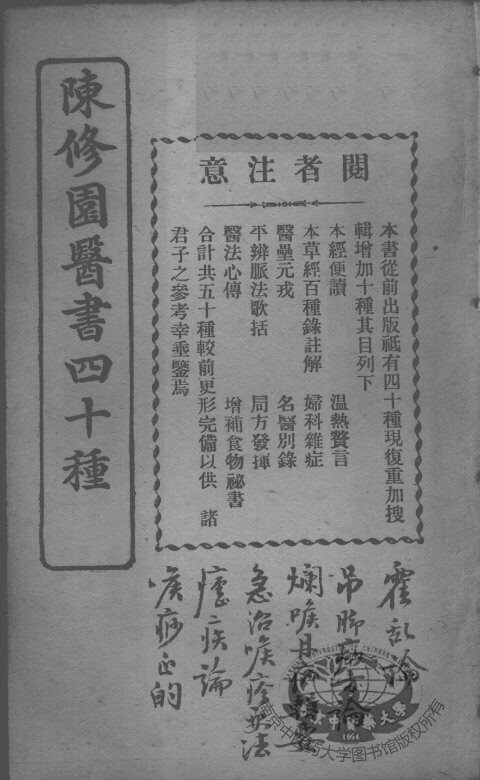 閱者注意
本書從前出版祗有四十種現復重加搜
輯增加十種其目列下
本經便讀 温熱贅言
本草經百種錄註解 婦科雜症
醫壘元戎 名醫別錄
平辨脈法歌括 局方發揮
醫法心傳 增補食物祕書
合計共五十種較前更形完備以供 諸
君子之參考幸垂鑒焉
陳修園醫書四十種
霍亂論
吊腳痧
爛喉丹痧
急治喉疹 法
瘧疾論
喉痧正的
南京中医药大学图书馆版权所有
1954